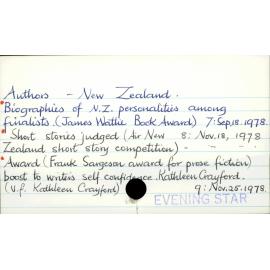 Authors - New Zealand.
Biographies of N.Z. personalities among
finalists. (James Wattie Book Award) 7: Sep. 18. 1978.
Short stories judged (Air New 8: Nov. 18, 1978
Zealand short story competition) - - - -
Award (Frank Sargeson award for prose fiction)
boost to writers self confidence. Kathleen Crayford.
(v.f. Kathleen Crayford) 9: Nov. 25. 1978.
EVENING STAR